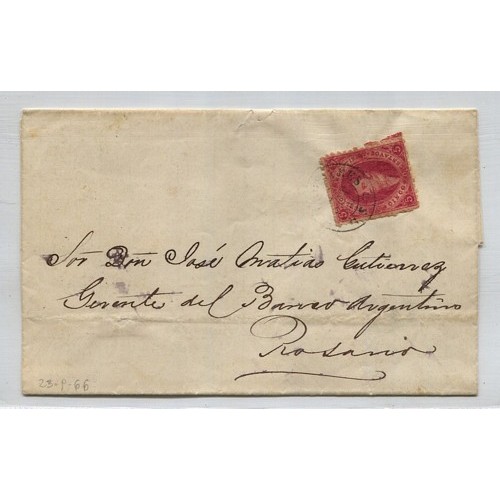 5 5
Sor Don José Matias Gutierrez
Gerente del Banco Argentino
Rosario
23-9-66